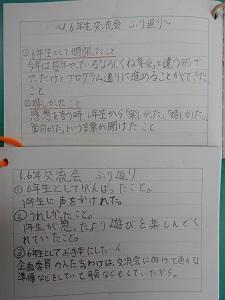 ～1.6年生交流会 ふり返り～
①6年生として頑張ったこと
今年は毎年やっているなわとび集会と違う形で
やったけどプログラム通りに進めることができた
こと
②嬉しかったこと
感想を言う時 1年生から「楽しかった」「嬉しかった」
面白かったという言葉が聞けたこと
1.6年交流会 ふり返り
①6年生としてがんばったこと。
1年生に声をかけれた。
②うれしかったこと。
1年生が思ったより遊びを楽しんでく
れていたこと。
③6年生としてお手本にしたい人
企画委員の人たち わけは、交流会に向けて色々な
準備などをしていて司会などもしていたから。